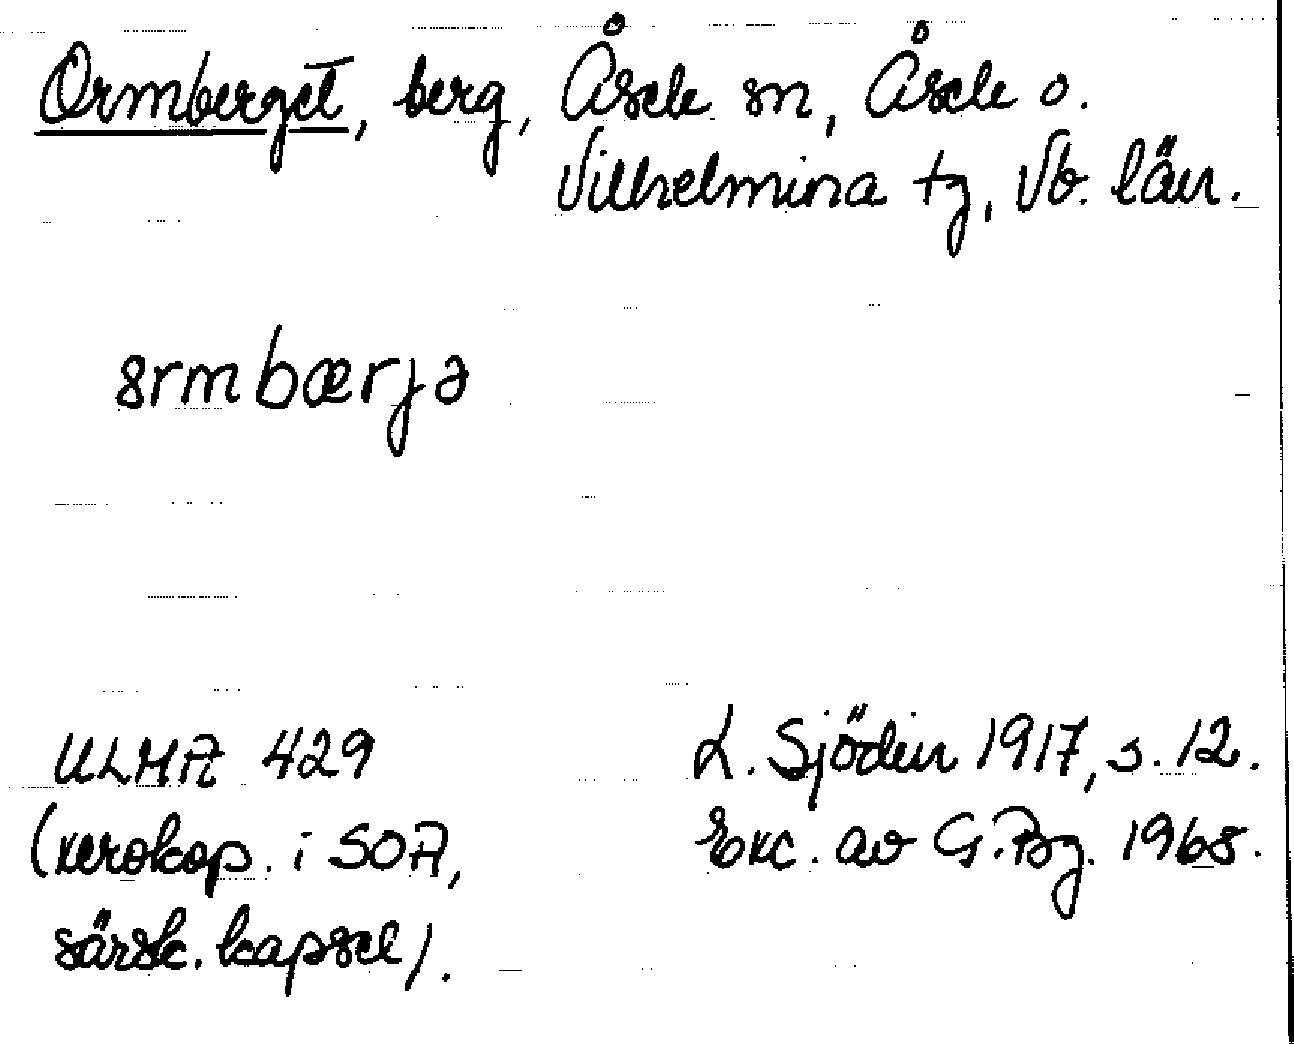 Ormberget, berg, Åsele sn, Åsele o.
Vilhelmina tg, Vb. län.
ormbærjə
ULMA 429
(xerokop. i SOA,
särsk. kapsel).
L. Sjödin 1917, s. 12.
Exc. av G. Bg. 1968.